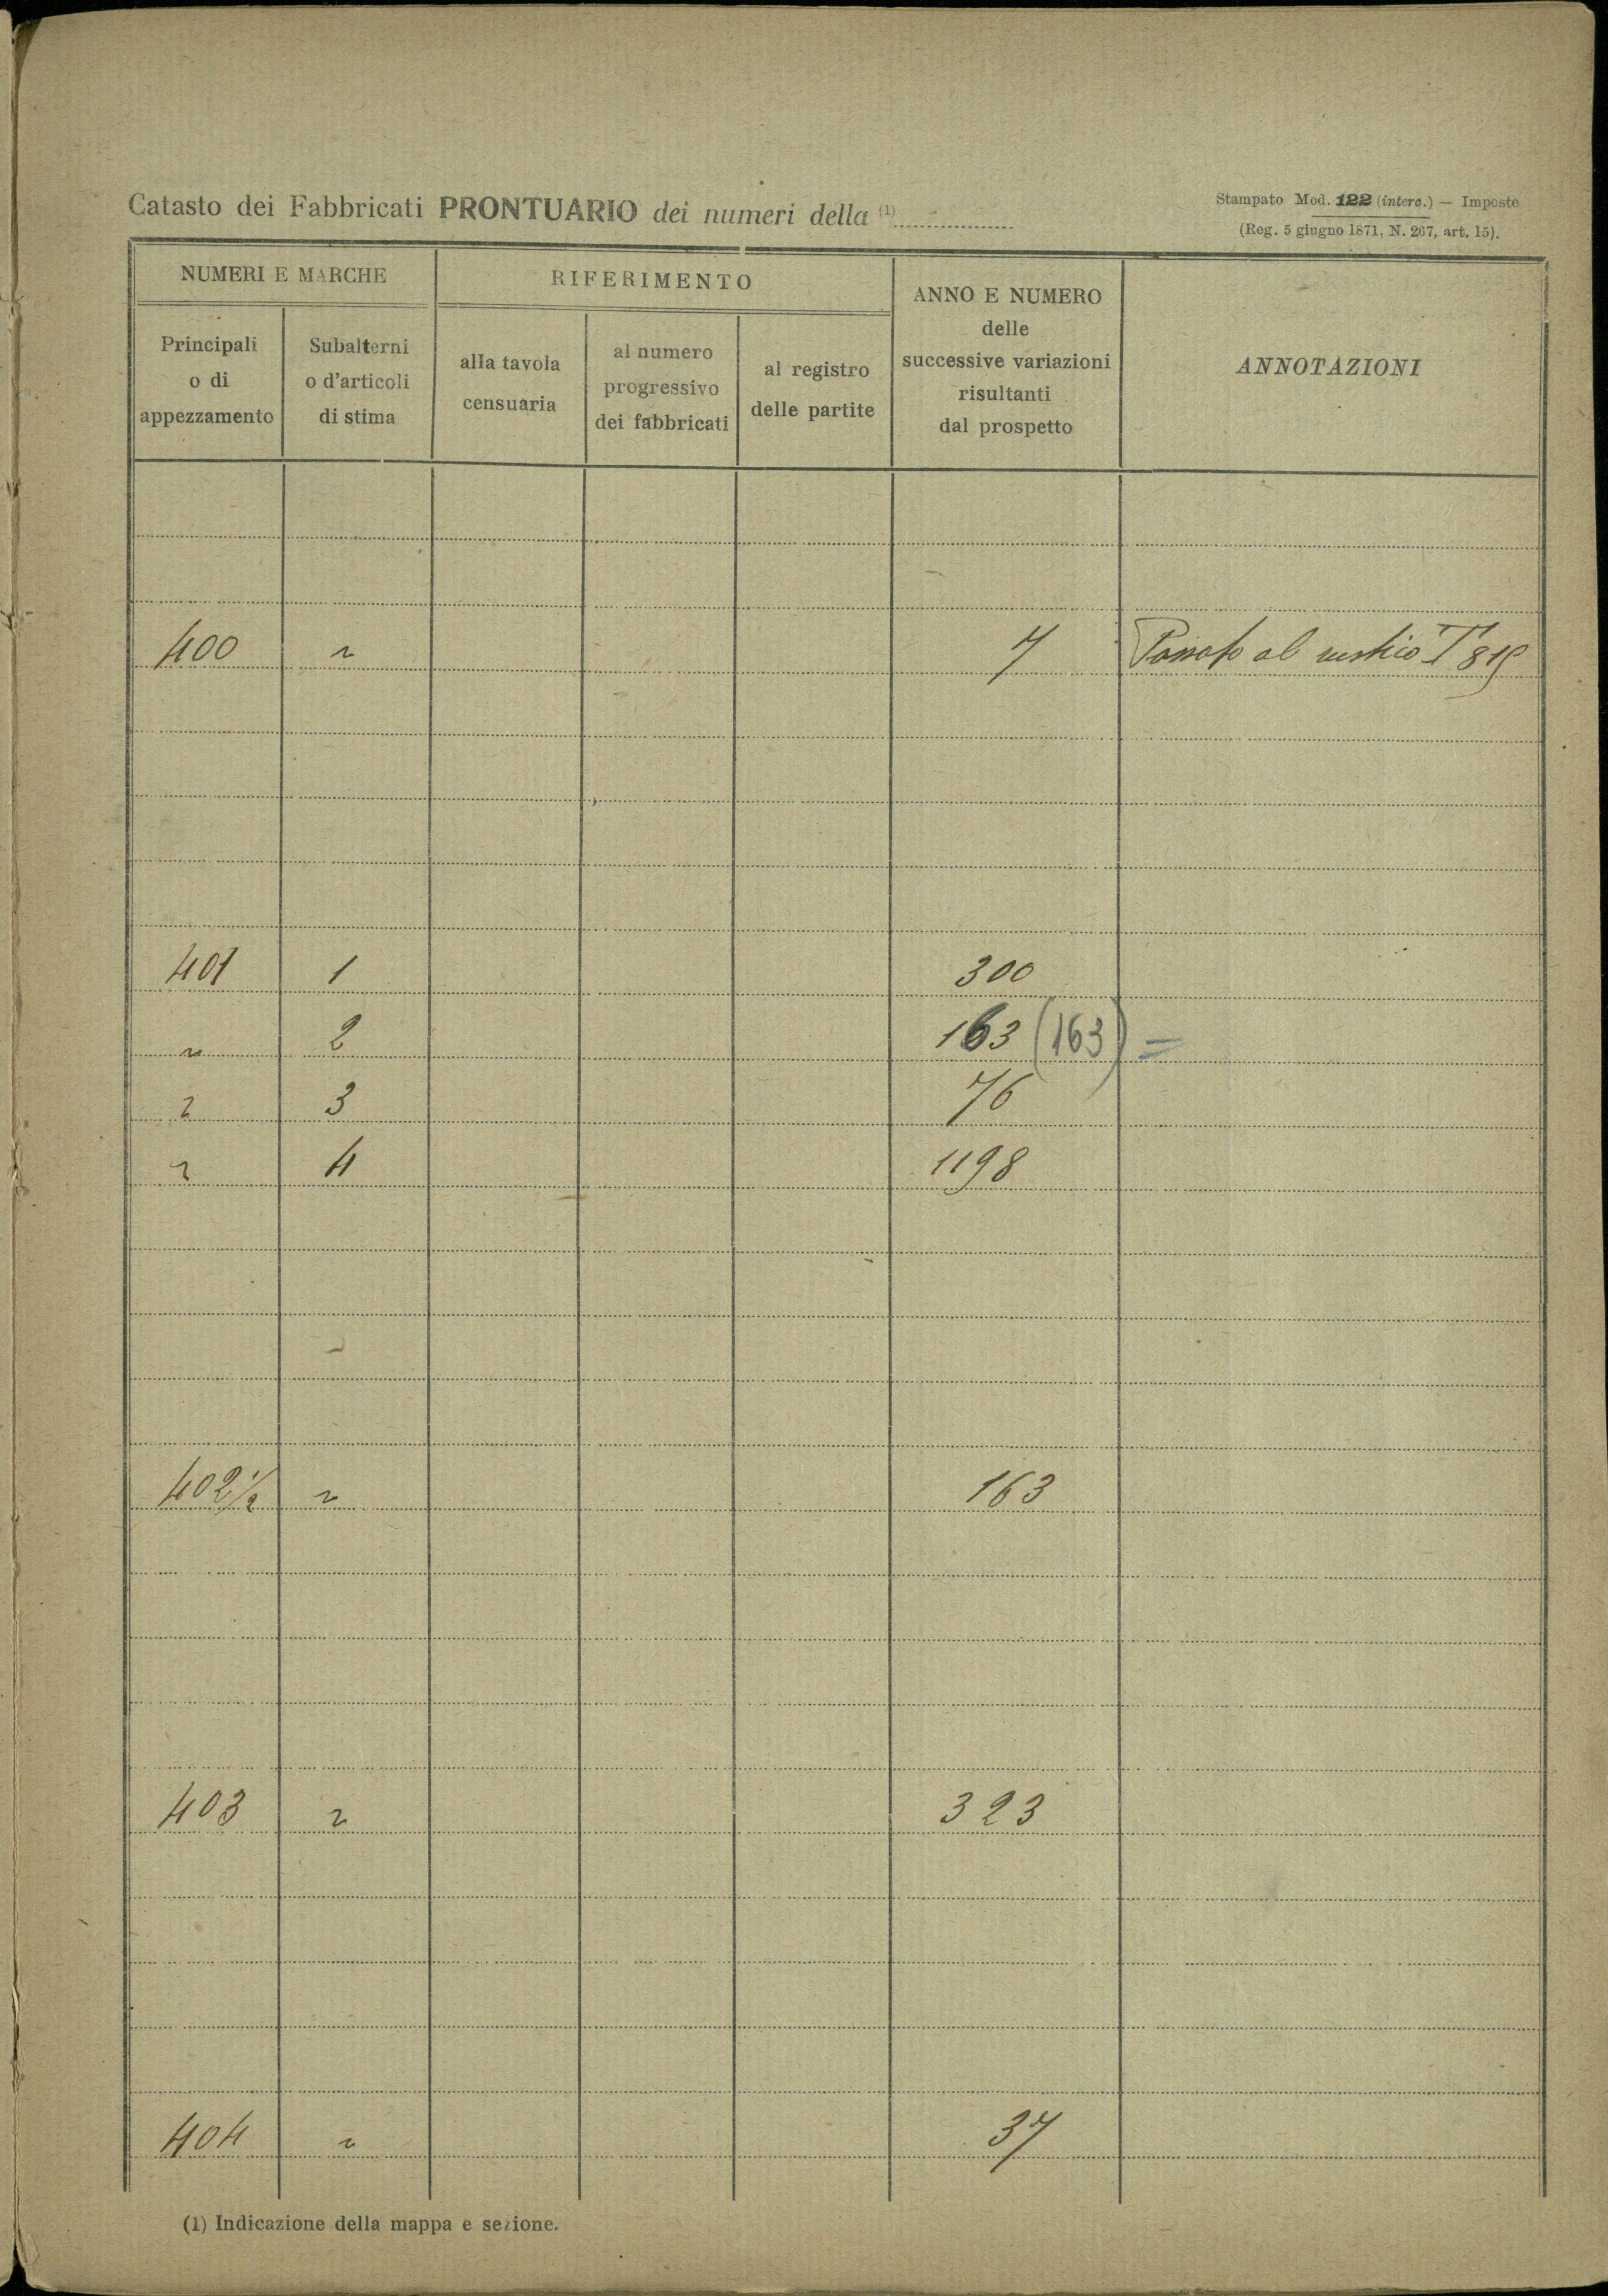 Catasto dei Fabbricati PRONTUARIO dei numeri della (1)
Stampato Mod. 122 (interc.) — Imposte
(Reg. 5 giugno 1871, N. 267, art. 15).
NUMERI E MARCHE
RIFERIMENTO
Principali
o di
appezzamento
Subalterni
o d'articoli
di stima
alla tavola
censuaria
al numero
progressivo
dei fabbricati
al registro
delle partite
ANNO E NUMERO
delle
successive variazioni
risultanti
dal prospetto
ANNOTAZIONI
400 " 7 Passato al rustico T 819
401 1 300
" 2 163 (163) =
" 3 76
" 4 1198
402 1/2 " 163
403 " 323
404 " 37
(1) Indicazione della mappa e sezione.